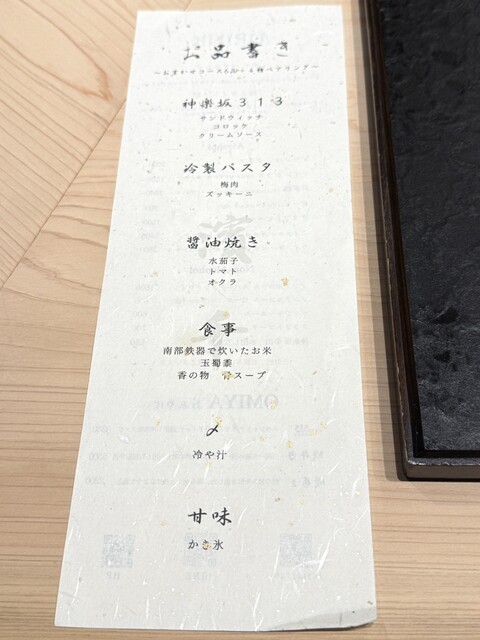 お品書き
〜おまかせコース6品・4種ペアリング〜
神楽坂313
サンドウィッチ
コロッケ
クリームソース
冷製パスタ
梅肉
ズッキーニ
醤油焼き
水茄子
トマト
オクラ
食事
南部鉄器で炊いたお米
玉蜀黍
香の物 骨スープ
〆
冷や汁
甘味
かき氷
OMIYA